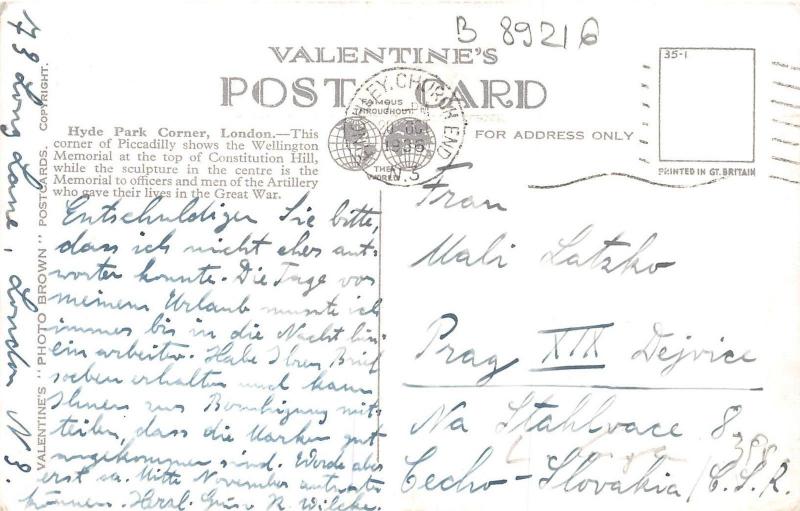 B 89216
VALENTINE'S
POST CARD
FAMOUS THROUGHOUT THE WORLD
FINCHLEY. CHURCH END
1936
N.3
35-1
PRINTED IN GT. BRITAIN
FOR ADDRESS ONLY
Hyde Park Corner, London.—This
corner of Piccadilly shows the Wellington
Memorial at the top of Constitution Hill,
while the sculpture in the centre is the
Memorial to officers and men of the Artillery
who gave their lives in the Great War.
VALENTINE'S "PHOTO BROWN" POSTCARDS. COPYRIGHT.
73 Long Lane, London N 3.
Entschuldigen Sie bitte,
dass ich nicht eher ant-
worten konnte. Die Tage vor
meinem Urlaub musste ich
immer bis in die Nacht hin-
ein arbeiten. Habe Ihren Brief
soeben erhalten und kann
Ihnen zur Beruhigung mit-
teilen, dass die Marken gut
angekommen sind. Werde aber
erst ca. Mitte November antworten
können. Herzl. Grüsse R. Wilcke.
Frau
Mali Latzko
Prag XIX Dejvice
Na Stahlvace 8
Cecho-Slovakia/Č.S.R.